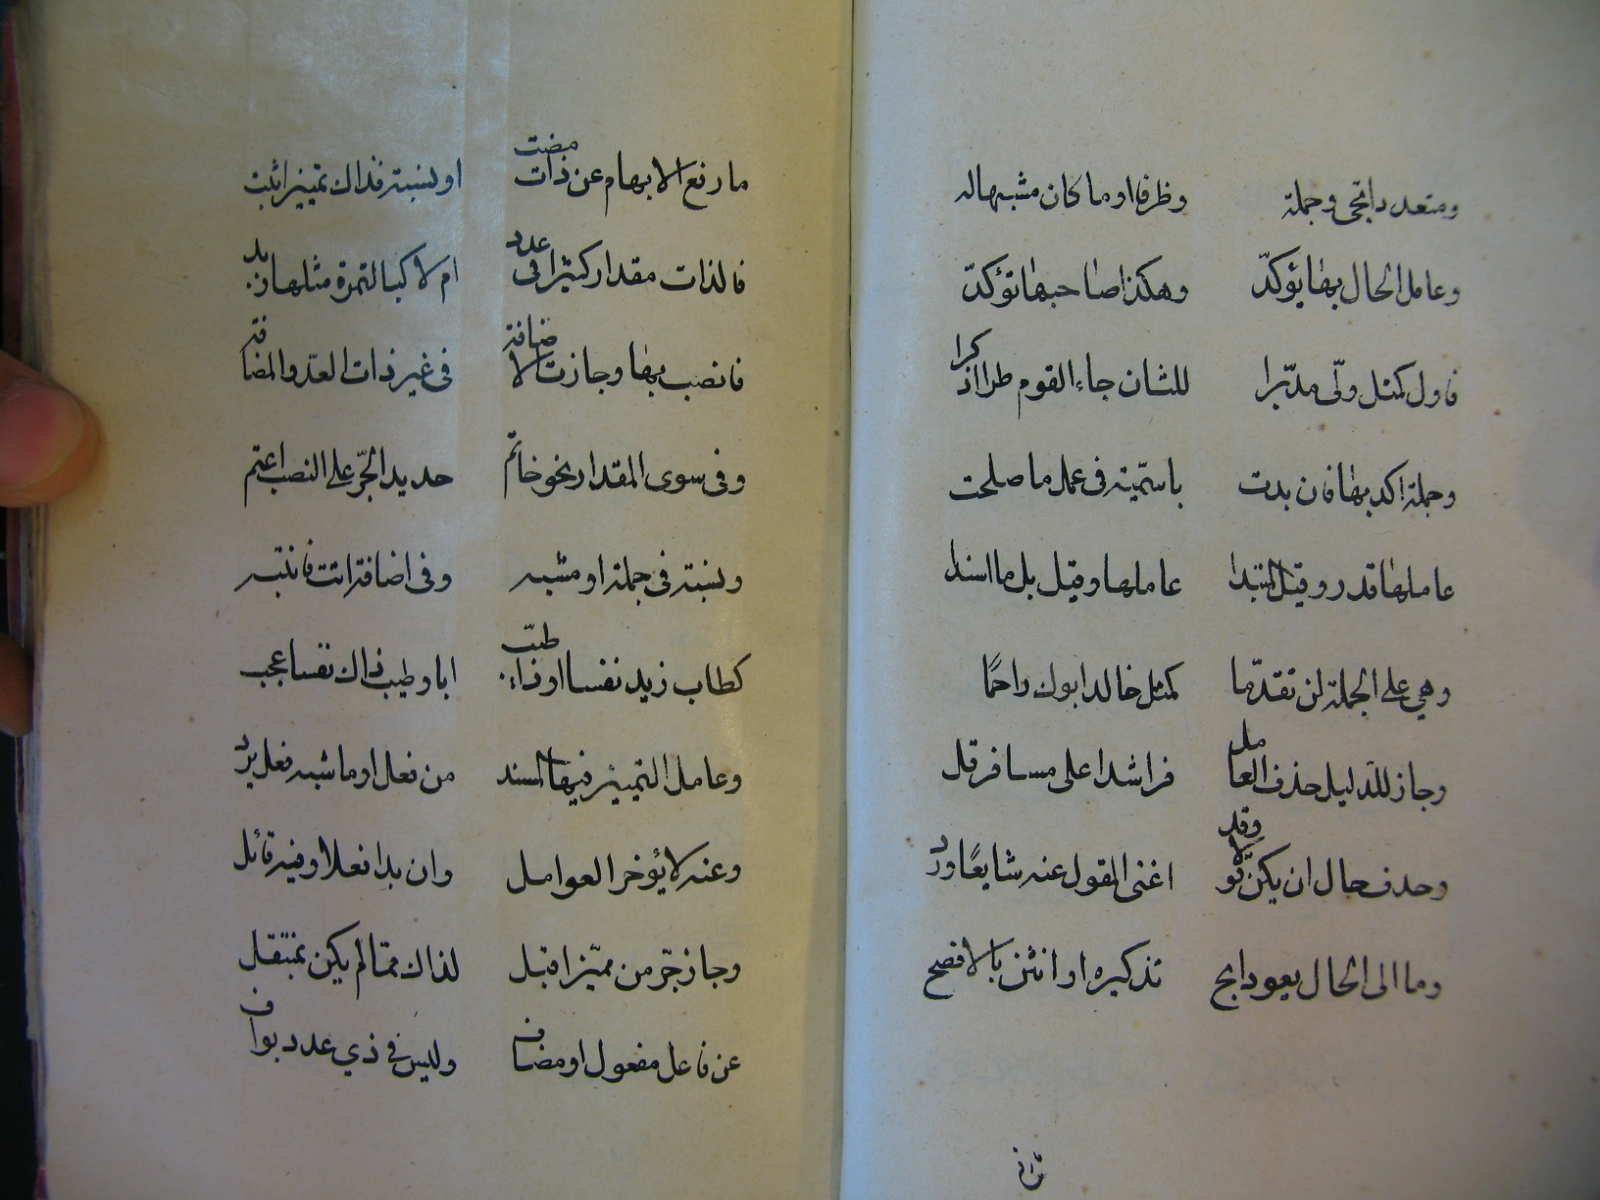 ومتعددا يجى وجملة وظرفا او ما كان مشبها له
وعامل الحال بها يؤكدّ وهكذا صاحبها تؤكدّ
فاول كمثل ولّى مدبّرا للشان جاء القوم طرا اذكرا
وجملة اكد بها فان بدت باسميّة فى عمل ما صلحت
عاملها قدر وقيل المبتدا عاملها وقيل بل ما اسندا
وهي على الجملة لن تقدّما كمثل خالد ابوك راحمًا
وجاز للدليل حذف العامل فراشدا على مسافر قل
وحذف حال ان يكن قولا وقد اغنى المقول عنه شايعًا ورد
وما الى الحال يعود ابح تذكيره او انثن بالافصح
ما رفع الابهام عن ذات مضت او نسبة فذاك تمييز اثبت
فالذات مقدار كثيرا فى عدد ام لا كبالتمرة مثلها زبد
فانصب بها وجازت الاضافة فى غير ذات العدّ والمضافة
وفى سوى المقدار نحو خاتم حديد الجرّ على النصب اعتم
ونسبة فى جملة او مشبه وفى اضافة اتت فانتبه
كطاب زيد نفسا او ذا طيّب ابا وطيب ذاك نفسا عجب
وعامل التمييز فيها المسند من فعل او ما شبه فعل يرد
وعنه لا يؤخر العوامل وان بدا فعلا وفيه قائل
وجاز جرّ من مميّزا قبل لذاك ممّا لم يكن بمنتقل
عن فاعل مفعول او مضاف وليس في ذي عدد بواف